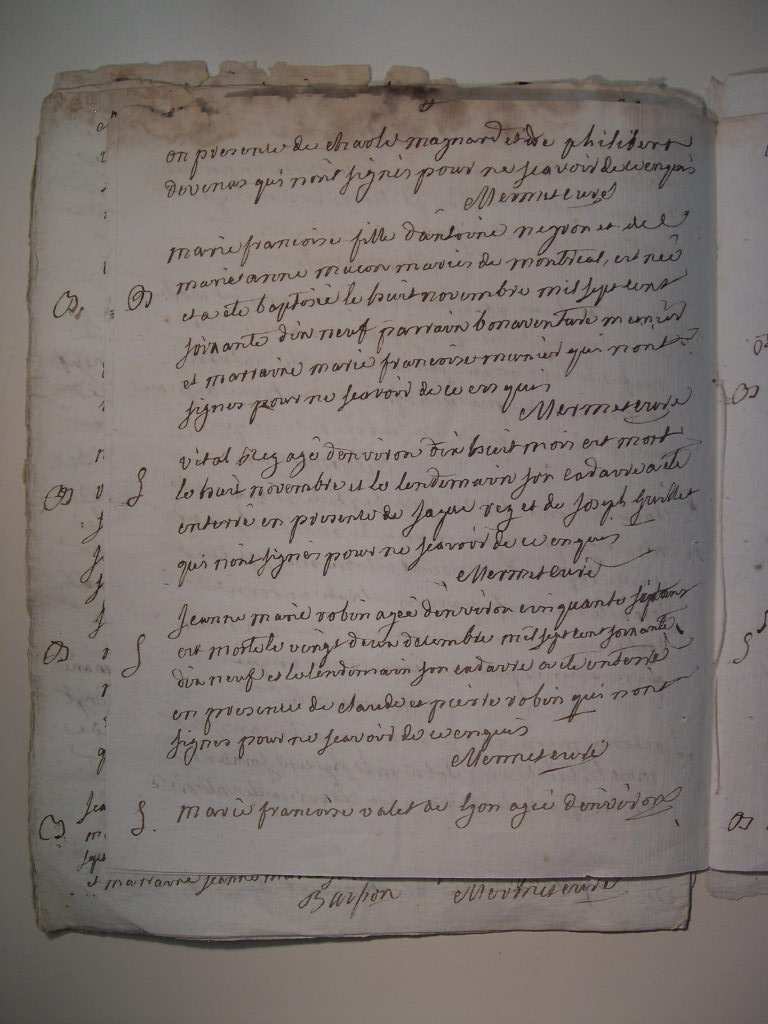 en presence de charle magnard et de philibert
devenas qui n'ont signés pour ne sçavoir de ce enquis
Mermet curé
marie francoise fille d'antoine neyron et de
marie anne macon mariés de montreal, est née
et a ete baptisée le huit novembre mil sept cent
soixante dix neuf parrain bonaventure munier
et marraine marie francoise munier qui n'ont
signés pour ne sçavoir de ce enquis
Mermet curé
vital rey agé d'environ dix huit mois est mort
le huit novembre et le lendemain son cadavre a ete
enterré en presence de jaque rey et de joseph guillet
qui n'ont signés pour ne sçavoir de ce enquis
Mermet curé
jeanne marie robin agée d'environ cinquante sept ans
est morte le vingt deux decembre mil sept cent soixante
dix neuf et le lendemain son cadavre a ete enterré
en presence de claude et pierre robin qui n'ont
signés pour ne sçavoir de ce enquis
Mermet curé
marie francoise valet de lyon agée d'environ
et marraine jeanne
Barpon Mermet curé